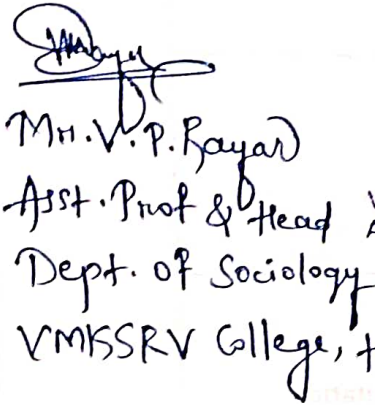 Mr. V. P. Rayar
Asst. Prof & Head
Dept. of Sociology
VMKSSRV College,